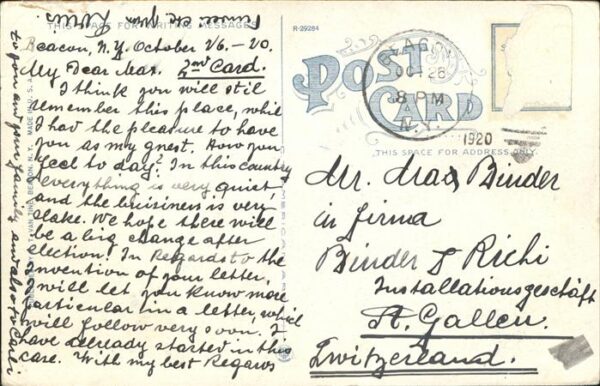 THIS SPACE FOR WRITING MESSAGES
R-29284
Beacon, N.Y. October 26.-20.
My Dear Max. 2nd Card.
I think you will still
remember this place, while
I had the pleasure to have
you as my guest. How you
feel to day? In this country
everything is very quiet,
and the buisiness is very
slake. We hope there will
be a big change after
election! In Regards to the
invention of your letter,
will let you know more
particular in a letter, which
will follow very soon. I
have already started in this
case. With my best Regards
to you and your family and also to
POST CARD
BEACON
OCT 26
8 PM
N.Y.
1920
THIS SPACE FOR ADDRESS ONLY
Mr. Max Binder
in firma
Binder & Richi
Installationsgeschäft
St. Gallen.
Switzerland.